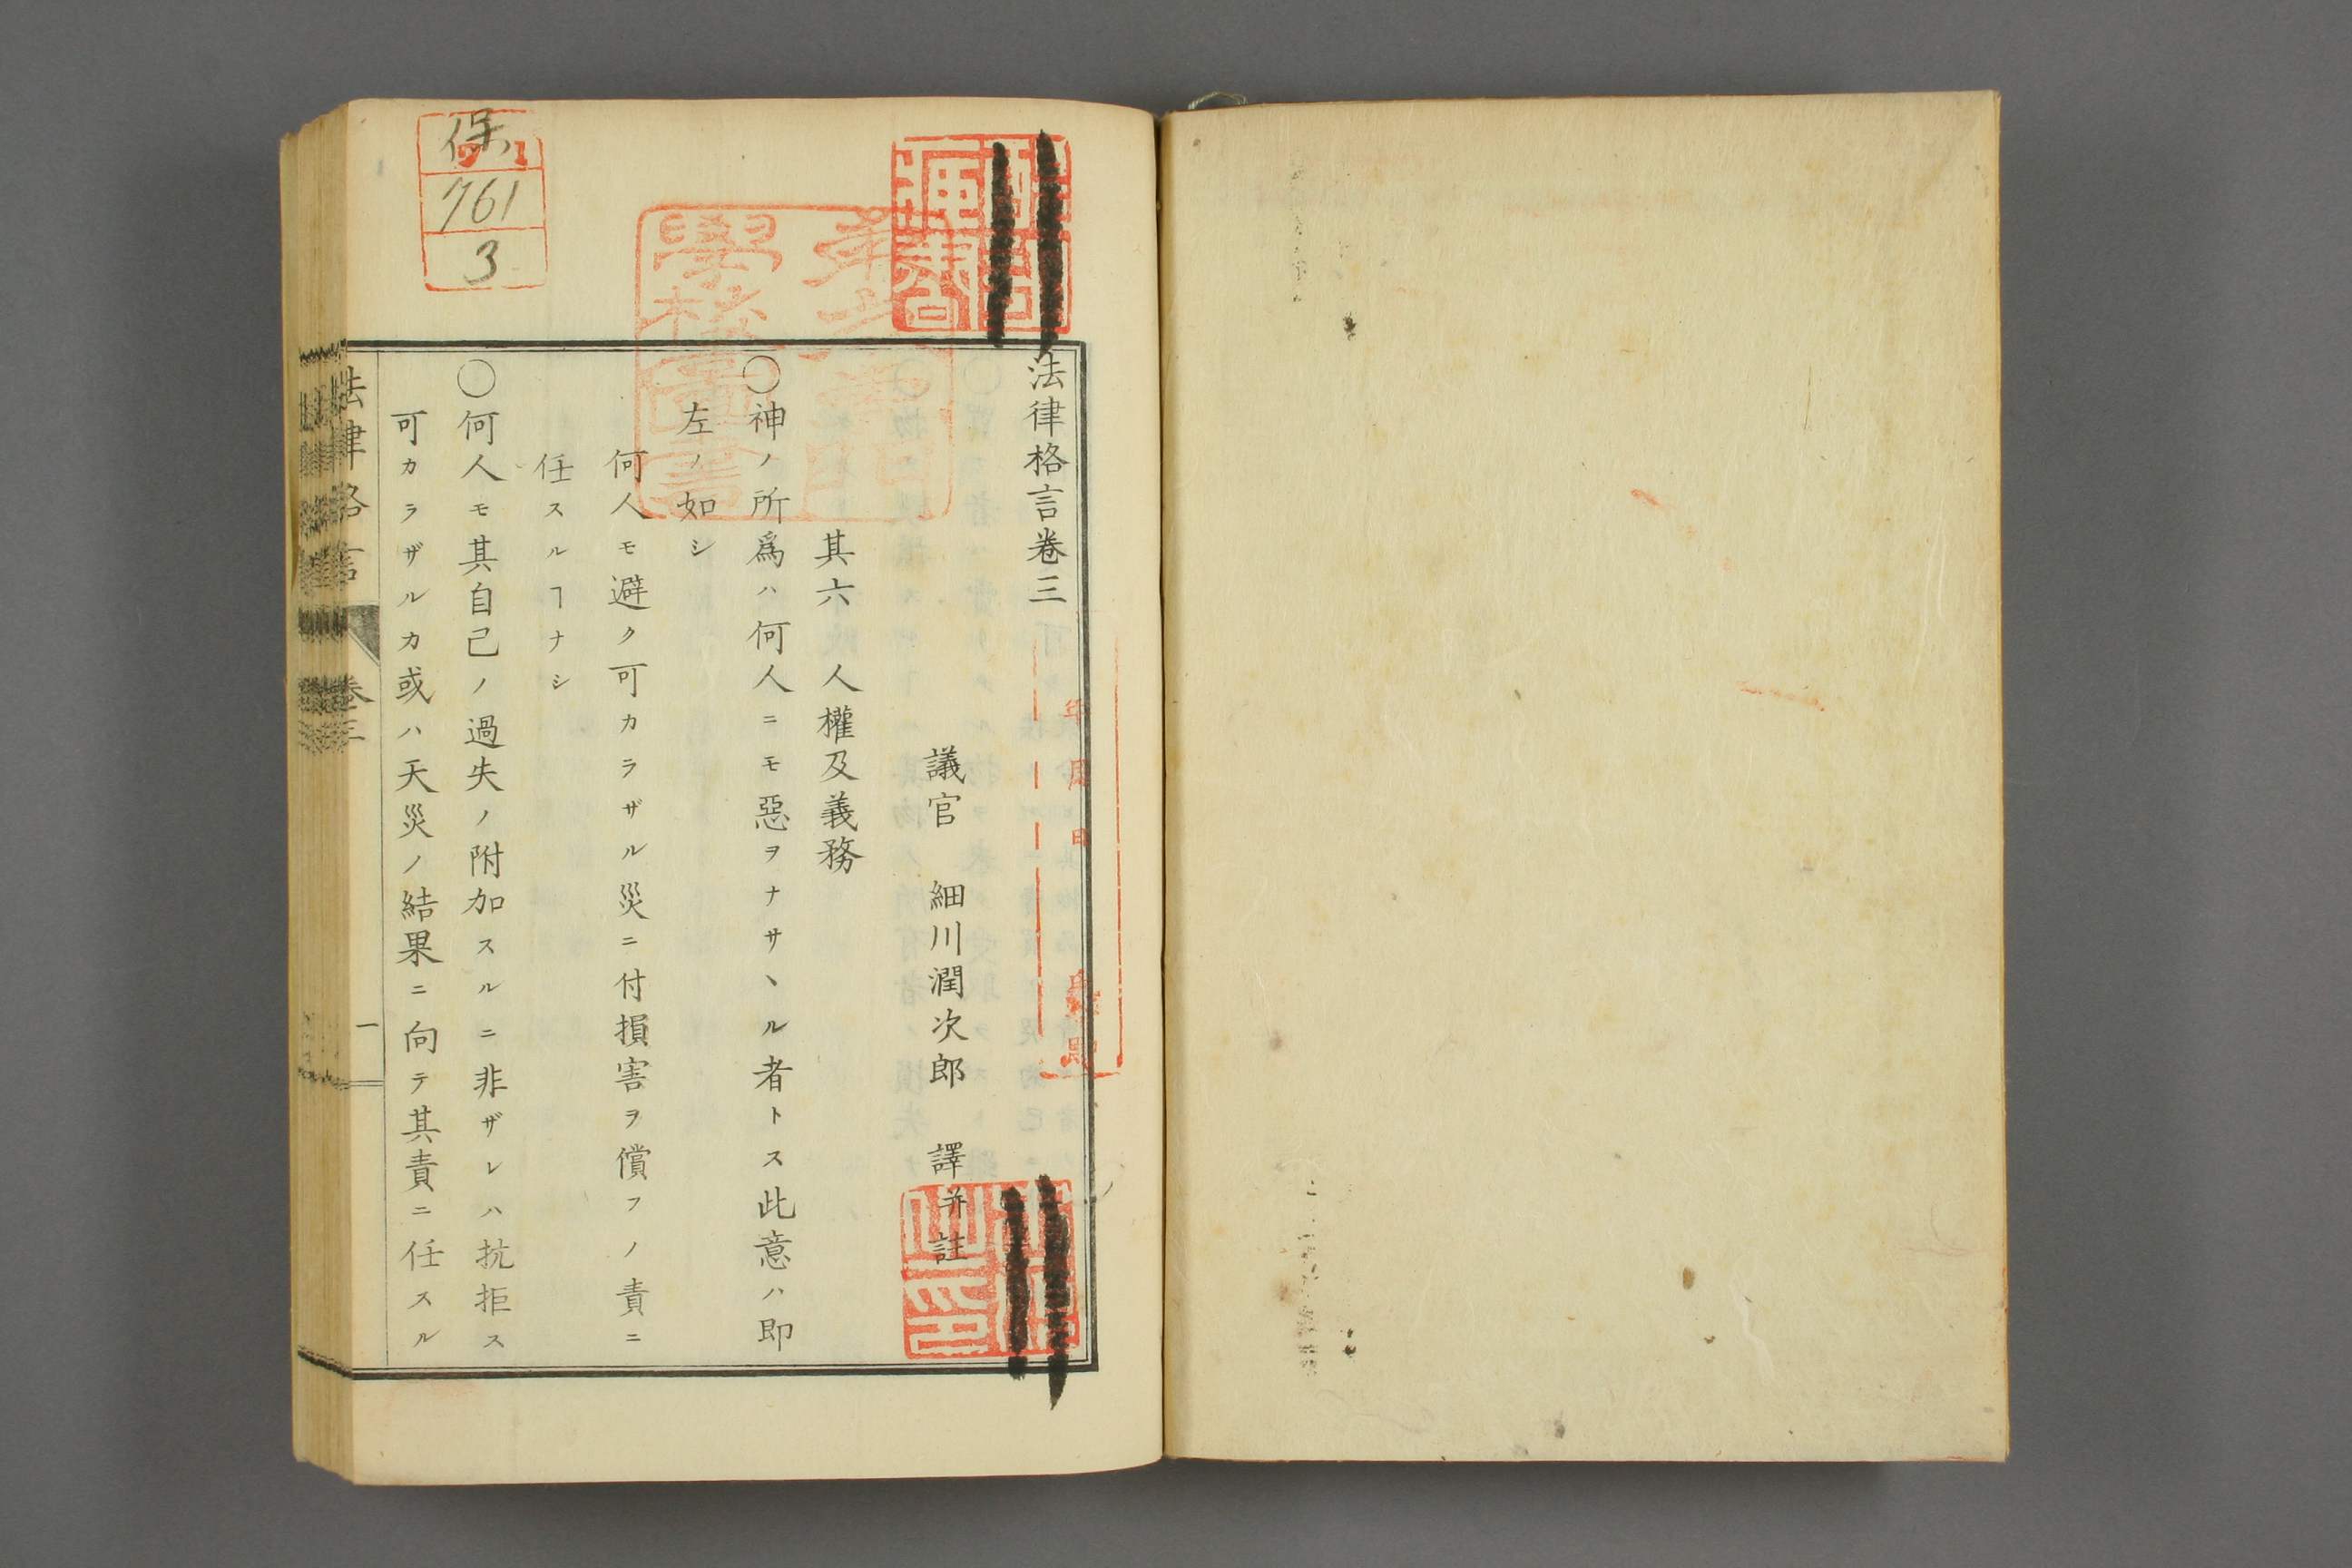 法律格言卷三
議官 細川潤次郎 譯并註
其六 人權及義務
〇神ノ所爲ハ何人ニモ惡ヲナサヽル者トス此意ハ即
左ノ如シ
何人モ避ク可カラザル災ニ付損害ヲ償フノ責ニ
任スルヿナシ
〇何人モ其自己ノ過失ノ附加スルニ非ザレハ抗拒ス
可カラザルカ或ハ天災ノ結果ニ向テ其責ニ任スル
法律格言
卷三
一
保
761
3
年月日